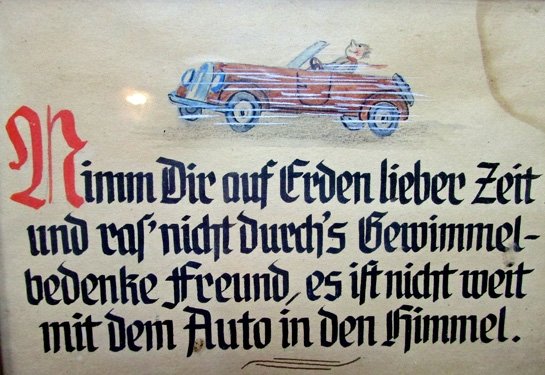 Nimm Dir auf Erden lieber Zeit
und ras' nicht durch's Gewimmel-
bedenke Freund, es ist nicht weit
mit dem Auto in den Himmel.